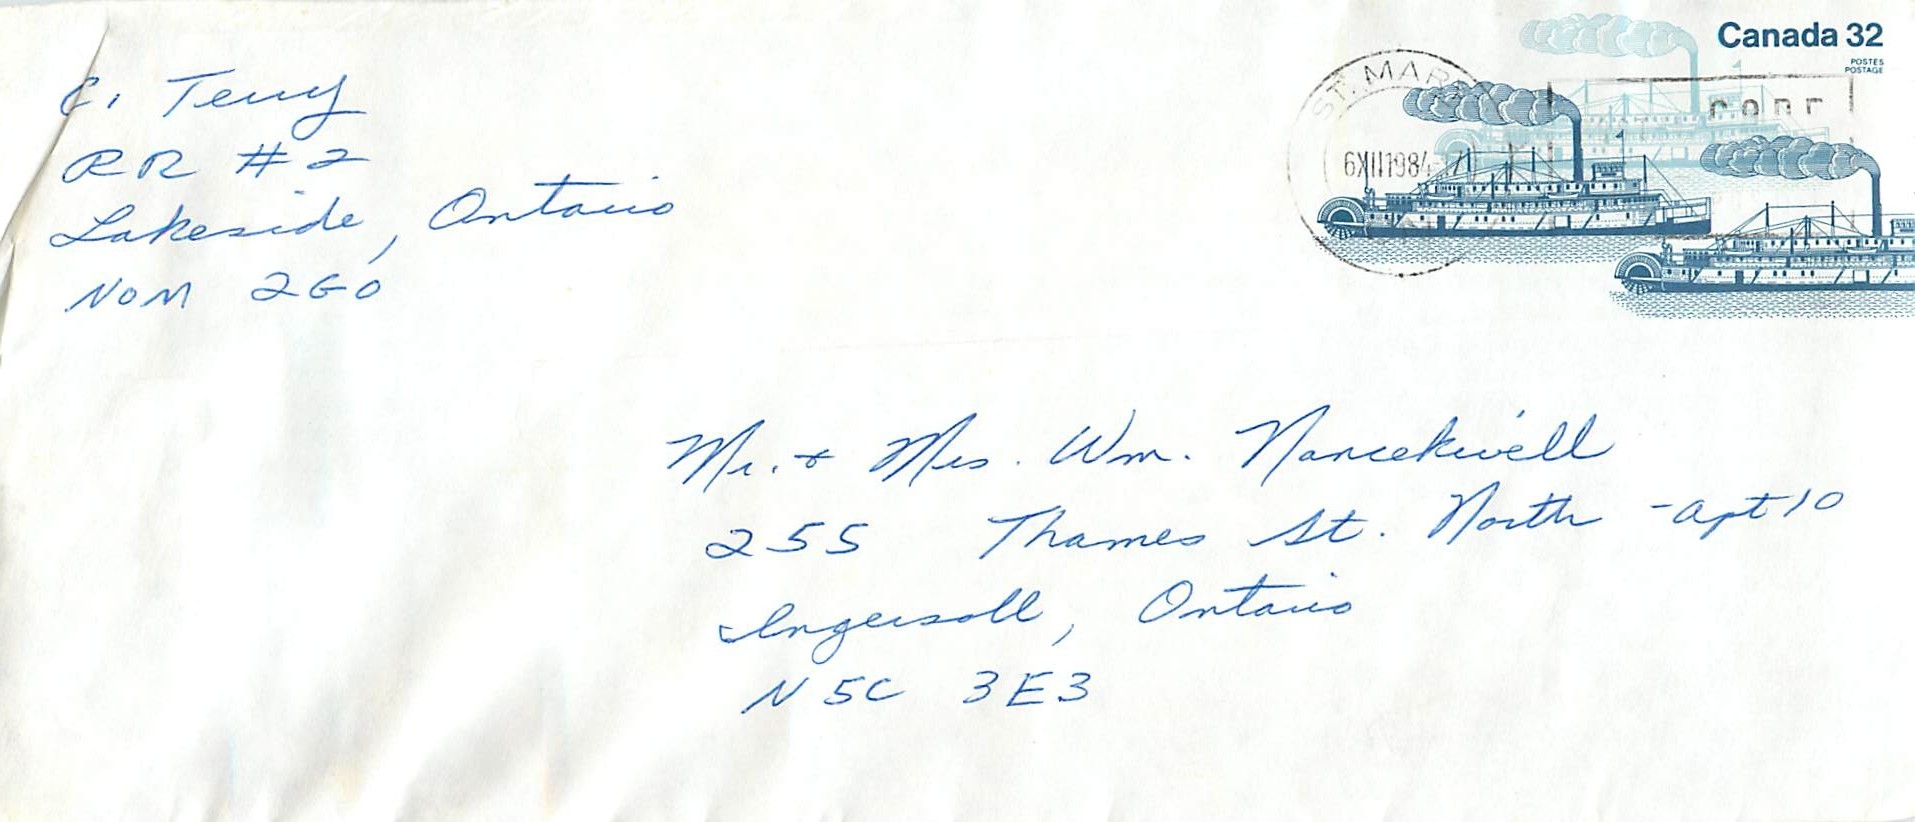 C. Terry
RR #2
Lakeside, Ontario
N0M 2G0
Canada 32
POSTES
POSTAGE
ST. MAR
6XII1984
CODE
Mr. + Mrs. Wm. Nancekivell
255 Thames St. North - apt 10
Ingersoll, Ontario
N5C 3E3